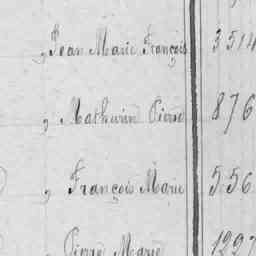 , Jean Marie François 3514
, Mathurin Pierre 876
, François Marie 556
Pierre Marie 1297